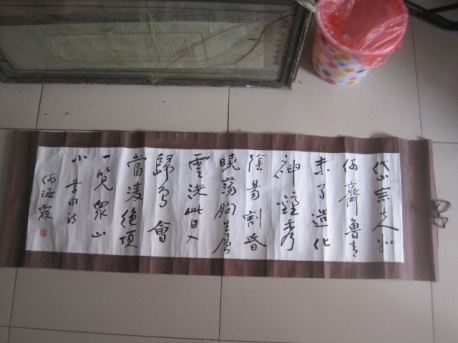 岱宗夫如
何齊魯青
未了造化
神鍾秀
陰陽割昏
曉蕩胸生層
雲決眥入
歸鳥會
當凌絕頂
一覽眾山
小
何海霞